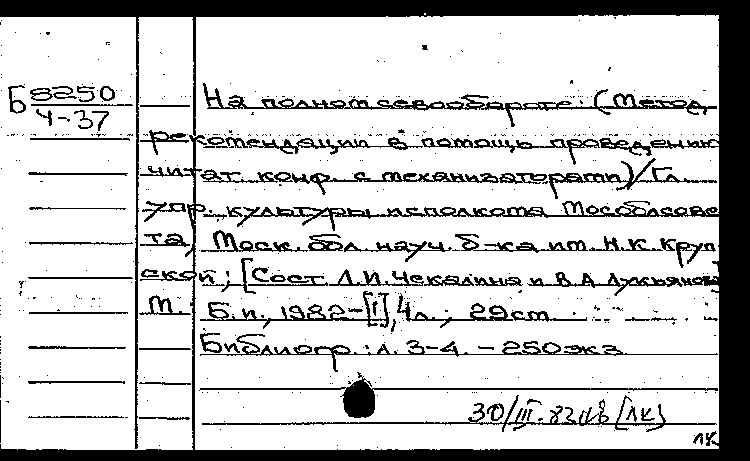 Б 8250
Ч-37
На полном севообороте: (Метод.
рекомендации в помощь проведению
читат. конф. с механизаторами)/Гл.
упр. культуры исполкома Мособлсове
та, Моск. обл. науч. б-ка им. Н.К. Круп
ской; [Сост. Л.И. Чекалина и В.А Лукьянова]
М.: Б.и., 1982-[1], 4л.; 29см.
Библиогр.: л. 3-4. - 250экз.
30/III.83 [ЛК]
ЛК